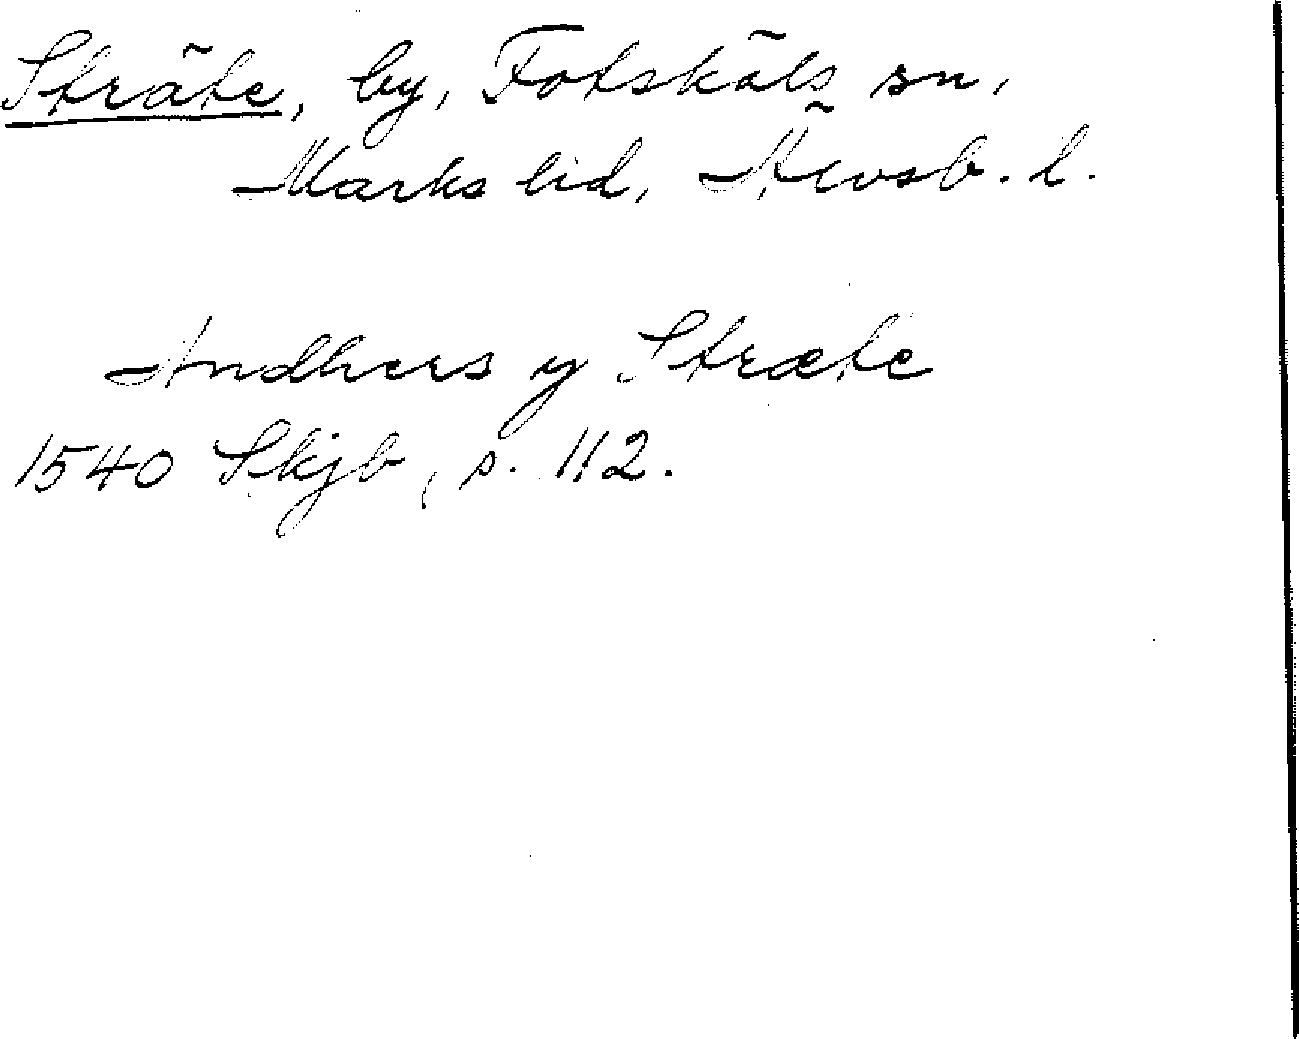 Sträte, by, Fotskäls sn,
Marks hd, Älvsb. l.
Andhers y Stræte
1540 Skjb, s. 112.